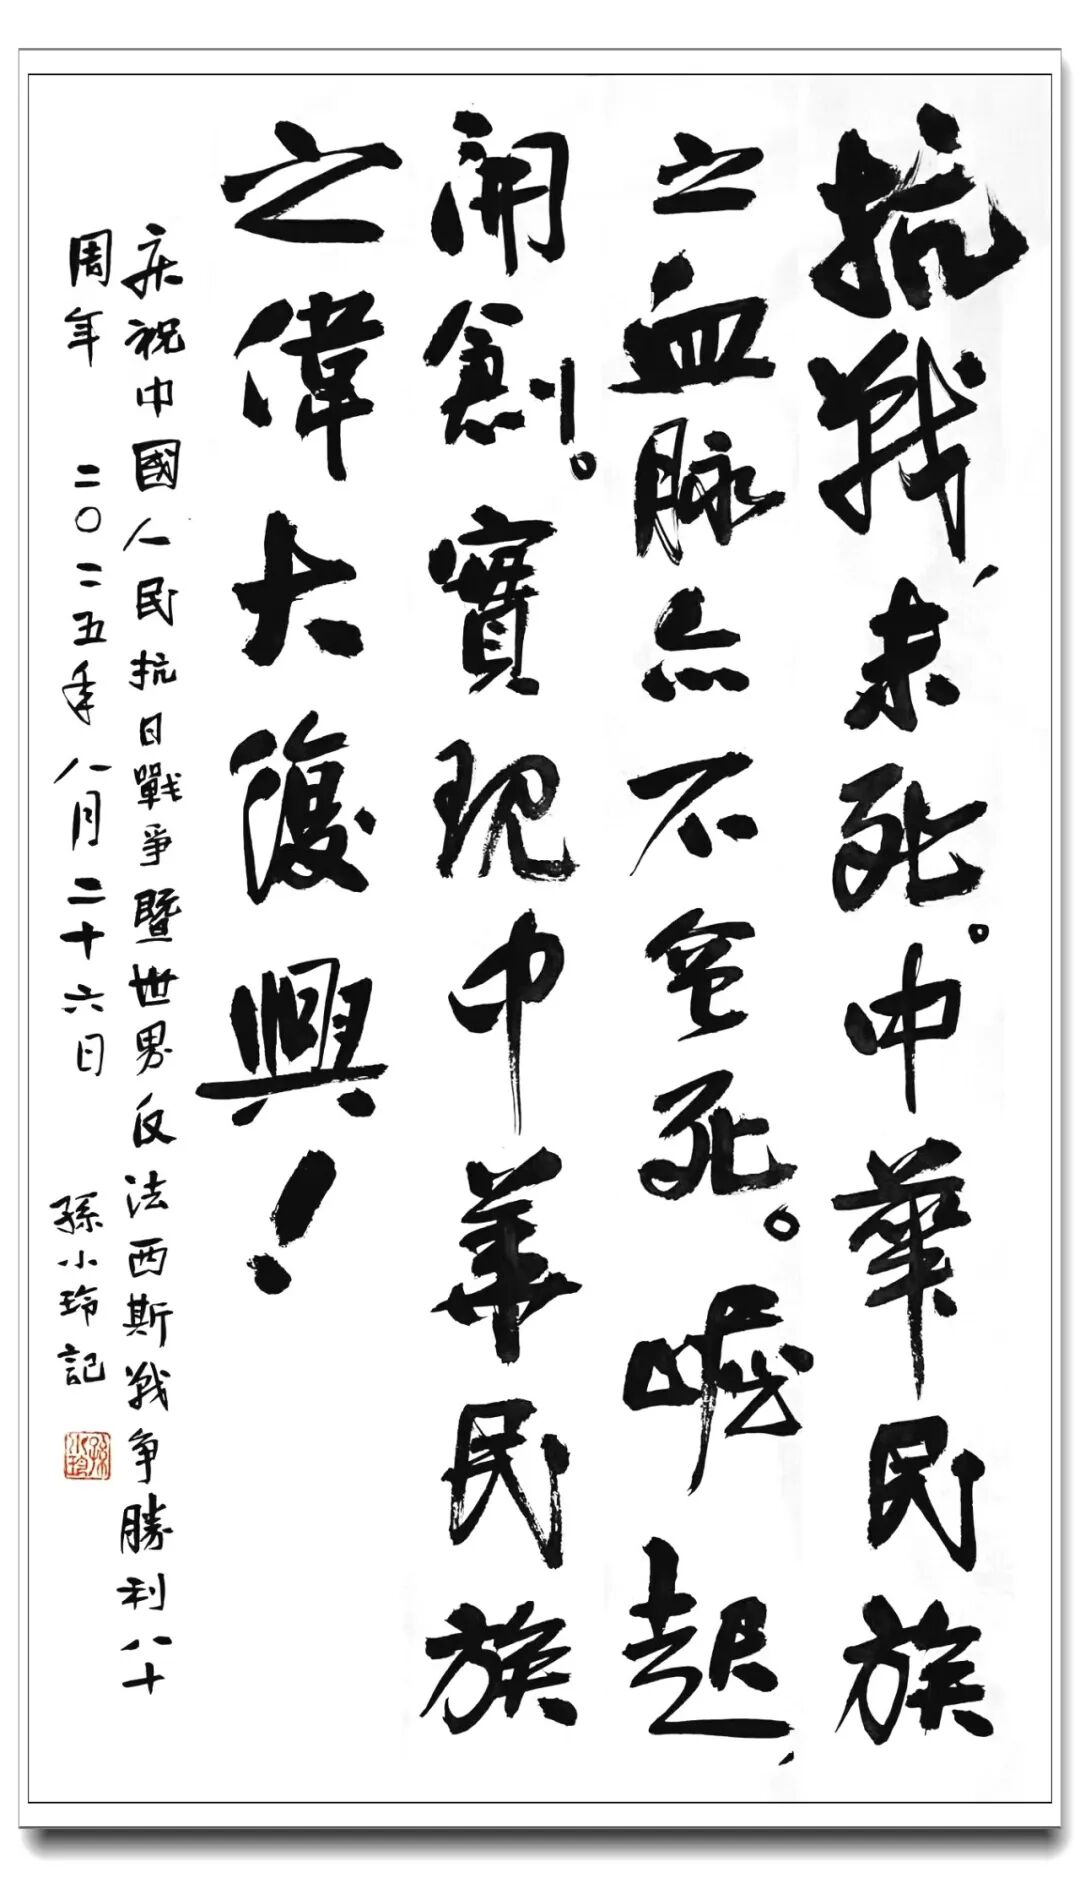 抗戰，未死。中華民族
之血脉亦不會死。崛起，
開創。實现中華民族
之偉大復興！
庆祝中國人民抗日戰爭暨世界反法西斯戰争勝利八十
周年 二〇二五年八月二十六日 孫小玲記